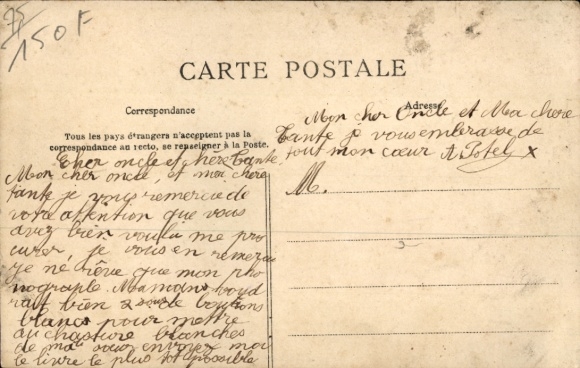 75
150F
CARTE POSTALE
Correspondance
Tous les pays étrangers n'acceptent pas la
correspondance au recto, se renseigner à la Poste.
Cher oncle et chere tante
Mon cher oncle, et ma chere
tante je vous remercie de
votre attention que vous
avez bien voulu me pro
curer, je vous en remercie
je né rêve que mon pho
nographe. Maman voud
rait bien 2 de boutons
blancs pour mettre
au chausure blanches
de ma sœur envoyez moi
le livre le plus tot possible
Adresse
Mon cher Oncle et Ma chere
Tante je vous embrasse de
tout mon cœur A Potel x
M.
3